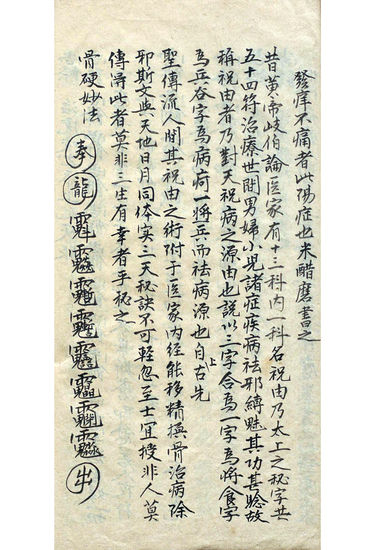 發痒不痛者此陽症也米醋磨書之
昔黃帝岐伯論医家有十三科內一科名祝由乃太上之秘字共
五十四符治療世間男婦小児諸症疾病祛邪縛魅其功甚驗故
稱祝由者乃對天祝病之源由也說以三字合為一字為將食字
為兵吞字為病疴一將兵而祛病源也自上古先
聖傳流人間其祝由之術附于医家內經能移精換骨治病除
邪斯文與天地日月同体实三天秘訣不可輕忽至士宜授非人莫
傳得此者莫非三生有幸者乎秘之
骨硬妙法 奉 龍 出